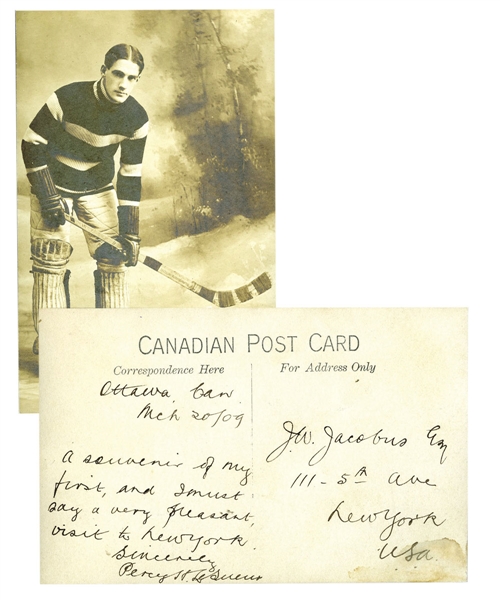 CANADIAN POST CARD
Correspondence Here
For Address Only
Ottawa, Can
Mch 20/09
A souvenir of my
first, and I must
say a very pleasant,
visit to New York.
Sincerely
Percy H. LeSueur
J.W. Jacobus Esq
111 - 5th Ave
New York
U.S.a.